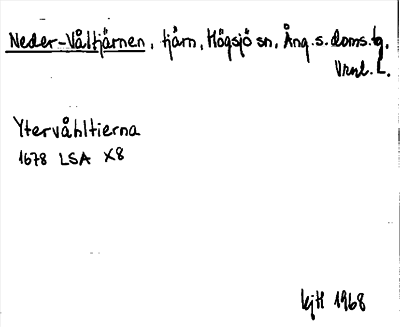 Neder-Våltjärnen, tjärn, Högsjö sn, Ång.s.doms.tg,
Vrnl. L.
Ytervåhltierna
1678 LSA X8
kjH 1968